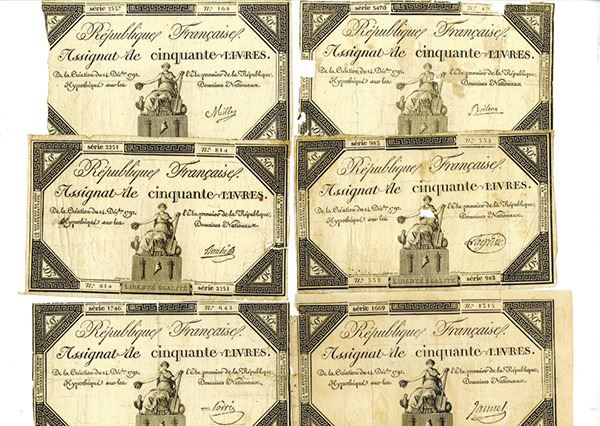 série 3357 Nº 168
République Française.
Assignat de cinquante LIVRES.
De la Création du 14 Décbre 1792, l'Etre, premier de la République,
Hypothéqué sur les Domaines Nationaux.
série 5470
République Française.
Assignat de cinquante LIVRES.
De la Création du 14 Décbre 1792, l'Etre, premier de la République,
Hypothéqué sur les Domaines Nationaux.
série 2251 Nº 814
République Française.
Assignat de cinquante LIVRES.
De la Création du 14 Décbre 1792, l'Etre, premier de la République,
Hypothéqué sur les Domaines Nationaux.
Nº 814 LIBERTÉ EGALITÉ série 2251
série 983 Nº 553
République Française.
Assignat de cinquante LIVRES.
De la Création du 14 Décbre 1792, l'Etre, premier de la République,
Hypothéqué sur les Domaines Nationaux.
Nº 553 LIBERTÉ EGALITÉ série 983
série 1746 Nº 643
République Française.
Assignat de cinquante LIVRES.
De la Création du 14 Décbre 1792, l'Etre, premier de la République,
Hypothéqué sur les Domaines Nationaux.
série 1669 Nº 1515
République Française.
Assignat de cinquante LIVRES.
De la Création du 14 Décbre 1792, l'Etre, premier de la République,
Hypothéqué sur les Domaines Nationaux.